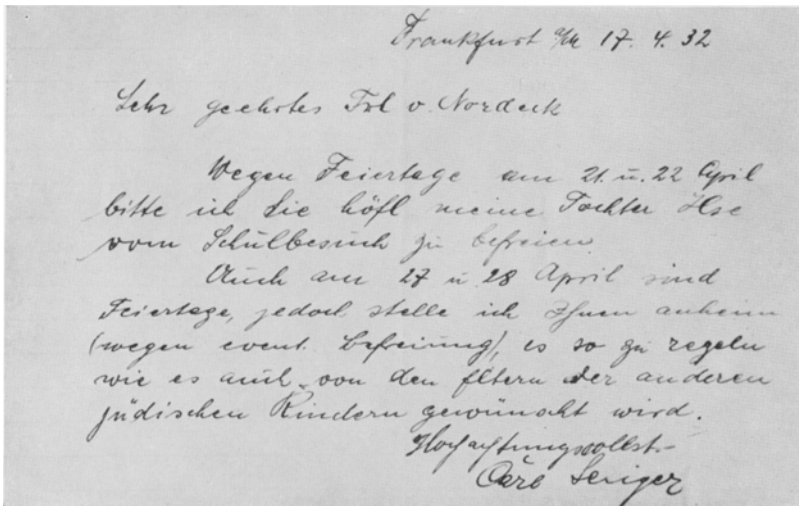 Frankfurt a/M 17. 4. 32
Sehr geehrtes Frl v. Nordeck
Wegen Feiertage am 21. u. 22 April
bitte ich Sie höfl meine Tochter Ilse
vom Schulbesuch zu befreien.
Auch am 27 u 28 April sind
Feiertage, jedoch stelle ich Ihnen anheim
(wegen event. Befreiung), es so zu regeln
wie es auch von den Eltern der anderen
jüdischen Kindern gewünscht wird.
Hochachtungsvollst.
Carl